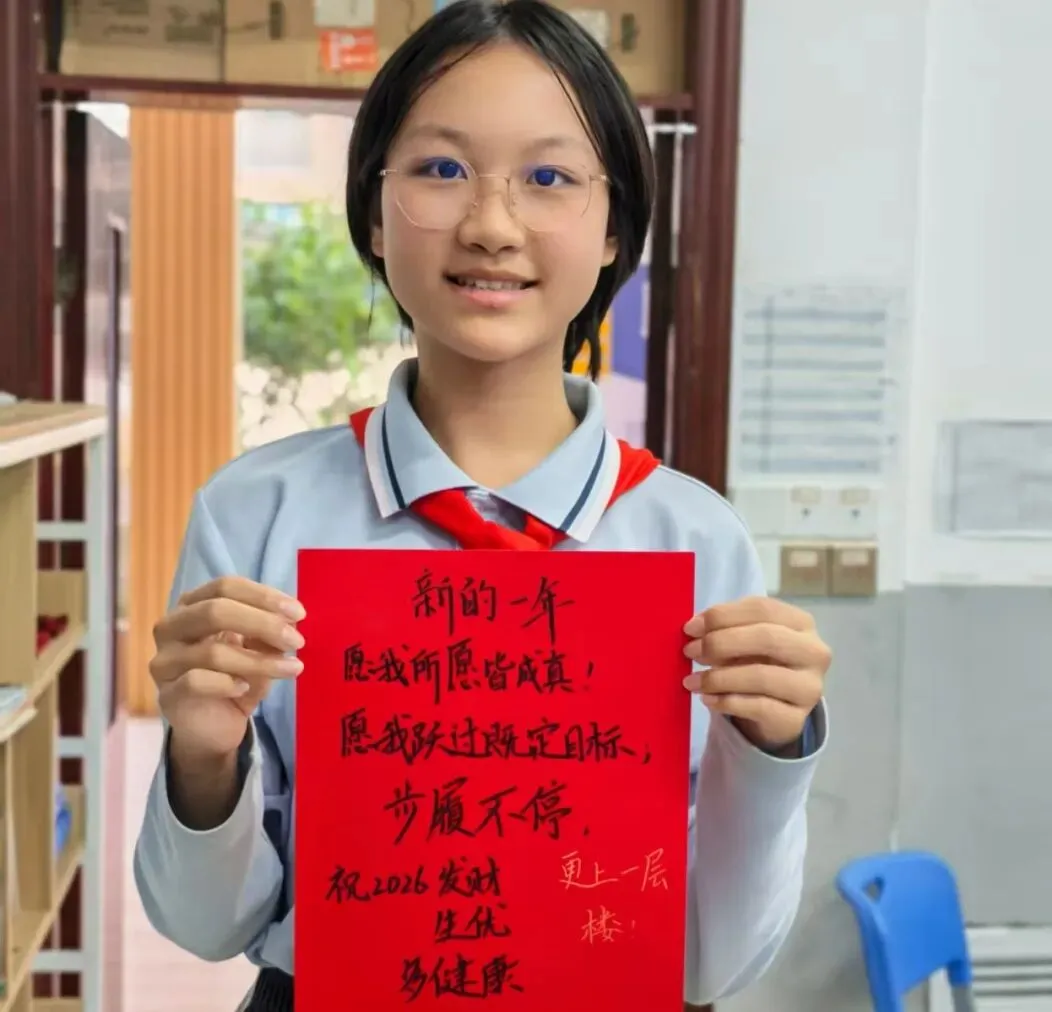 新的一年
愿我所愿皆成真！
愿我跃过既定目标，
步履不停．
祝2026发财
生优
健康
更上一层
楼！